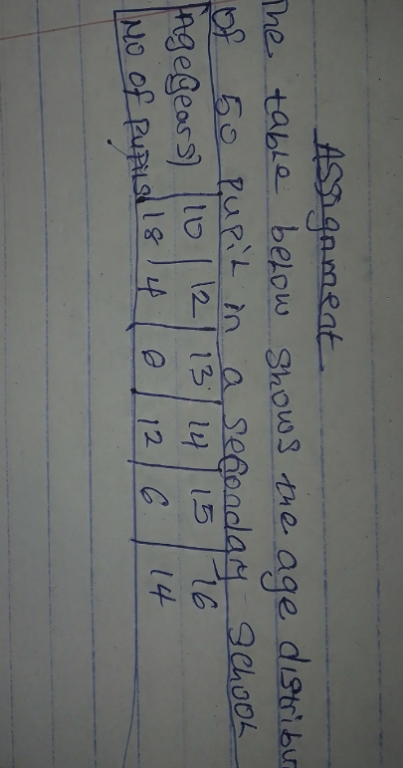 Assignment
The table below shows the age distribu
of 50 pupil in a secondary school
Age(years) 10 12 13 14 15 16
No of pupils 18 4 0 12 6 14